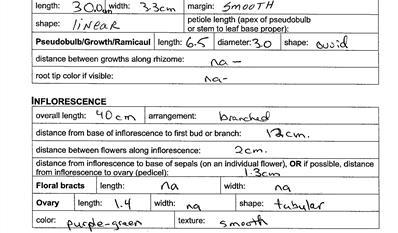 length: 30.0cm width: 3.3cm margin: smooth
shape: linear petiole length (apex of pseudobulb or stem to leaf base proper):
Pseudobulb/Growth/Ramicaul length: 6.5 diameter: 3.0 shape: ovoid
distance between growths along rhizome: na -
root tip color if visible: na-
INFLORESCENCE
overall length: 40cm arrangement: branched
distance from base of inflorescence to first bud or branch: 12cm.
distance between flowers along inflorescence: 2cm.
distance from inflorescence to base of sepals (on an individual flower), OR if possible, distance
from inflorescence to ovary (pedicel): 1.3cm
Floral bracts length: na width: na
Ovary length: 1.4 width: na shape: tubular
color: purple-green texture: smooth